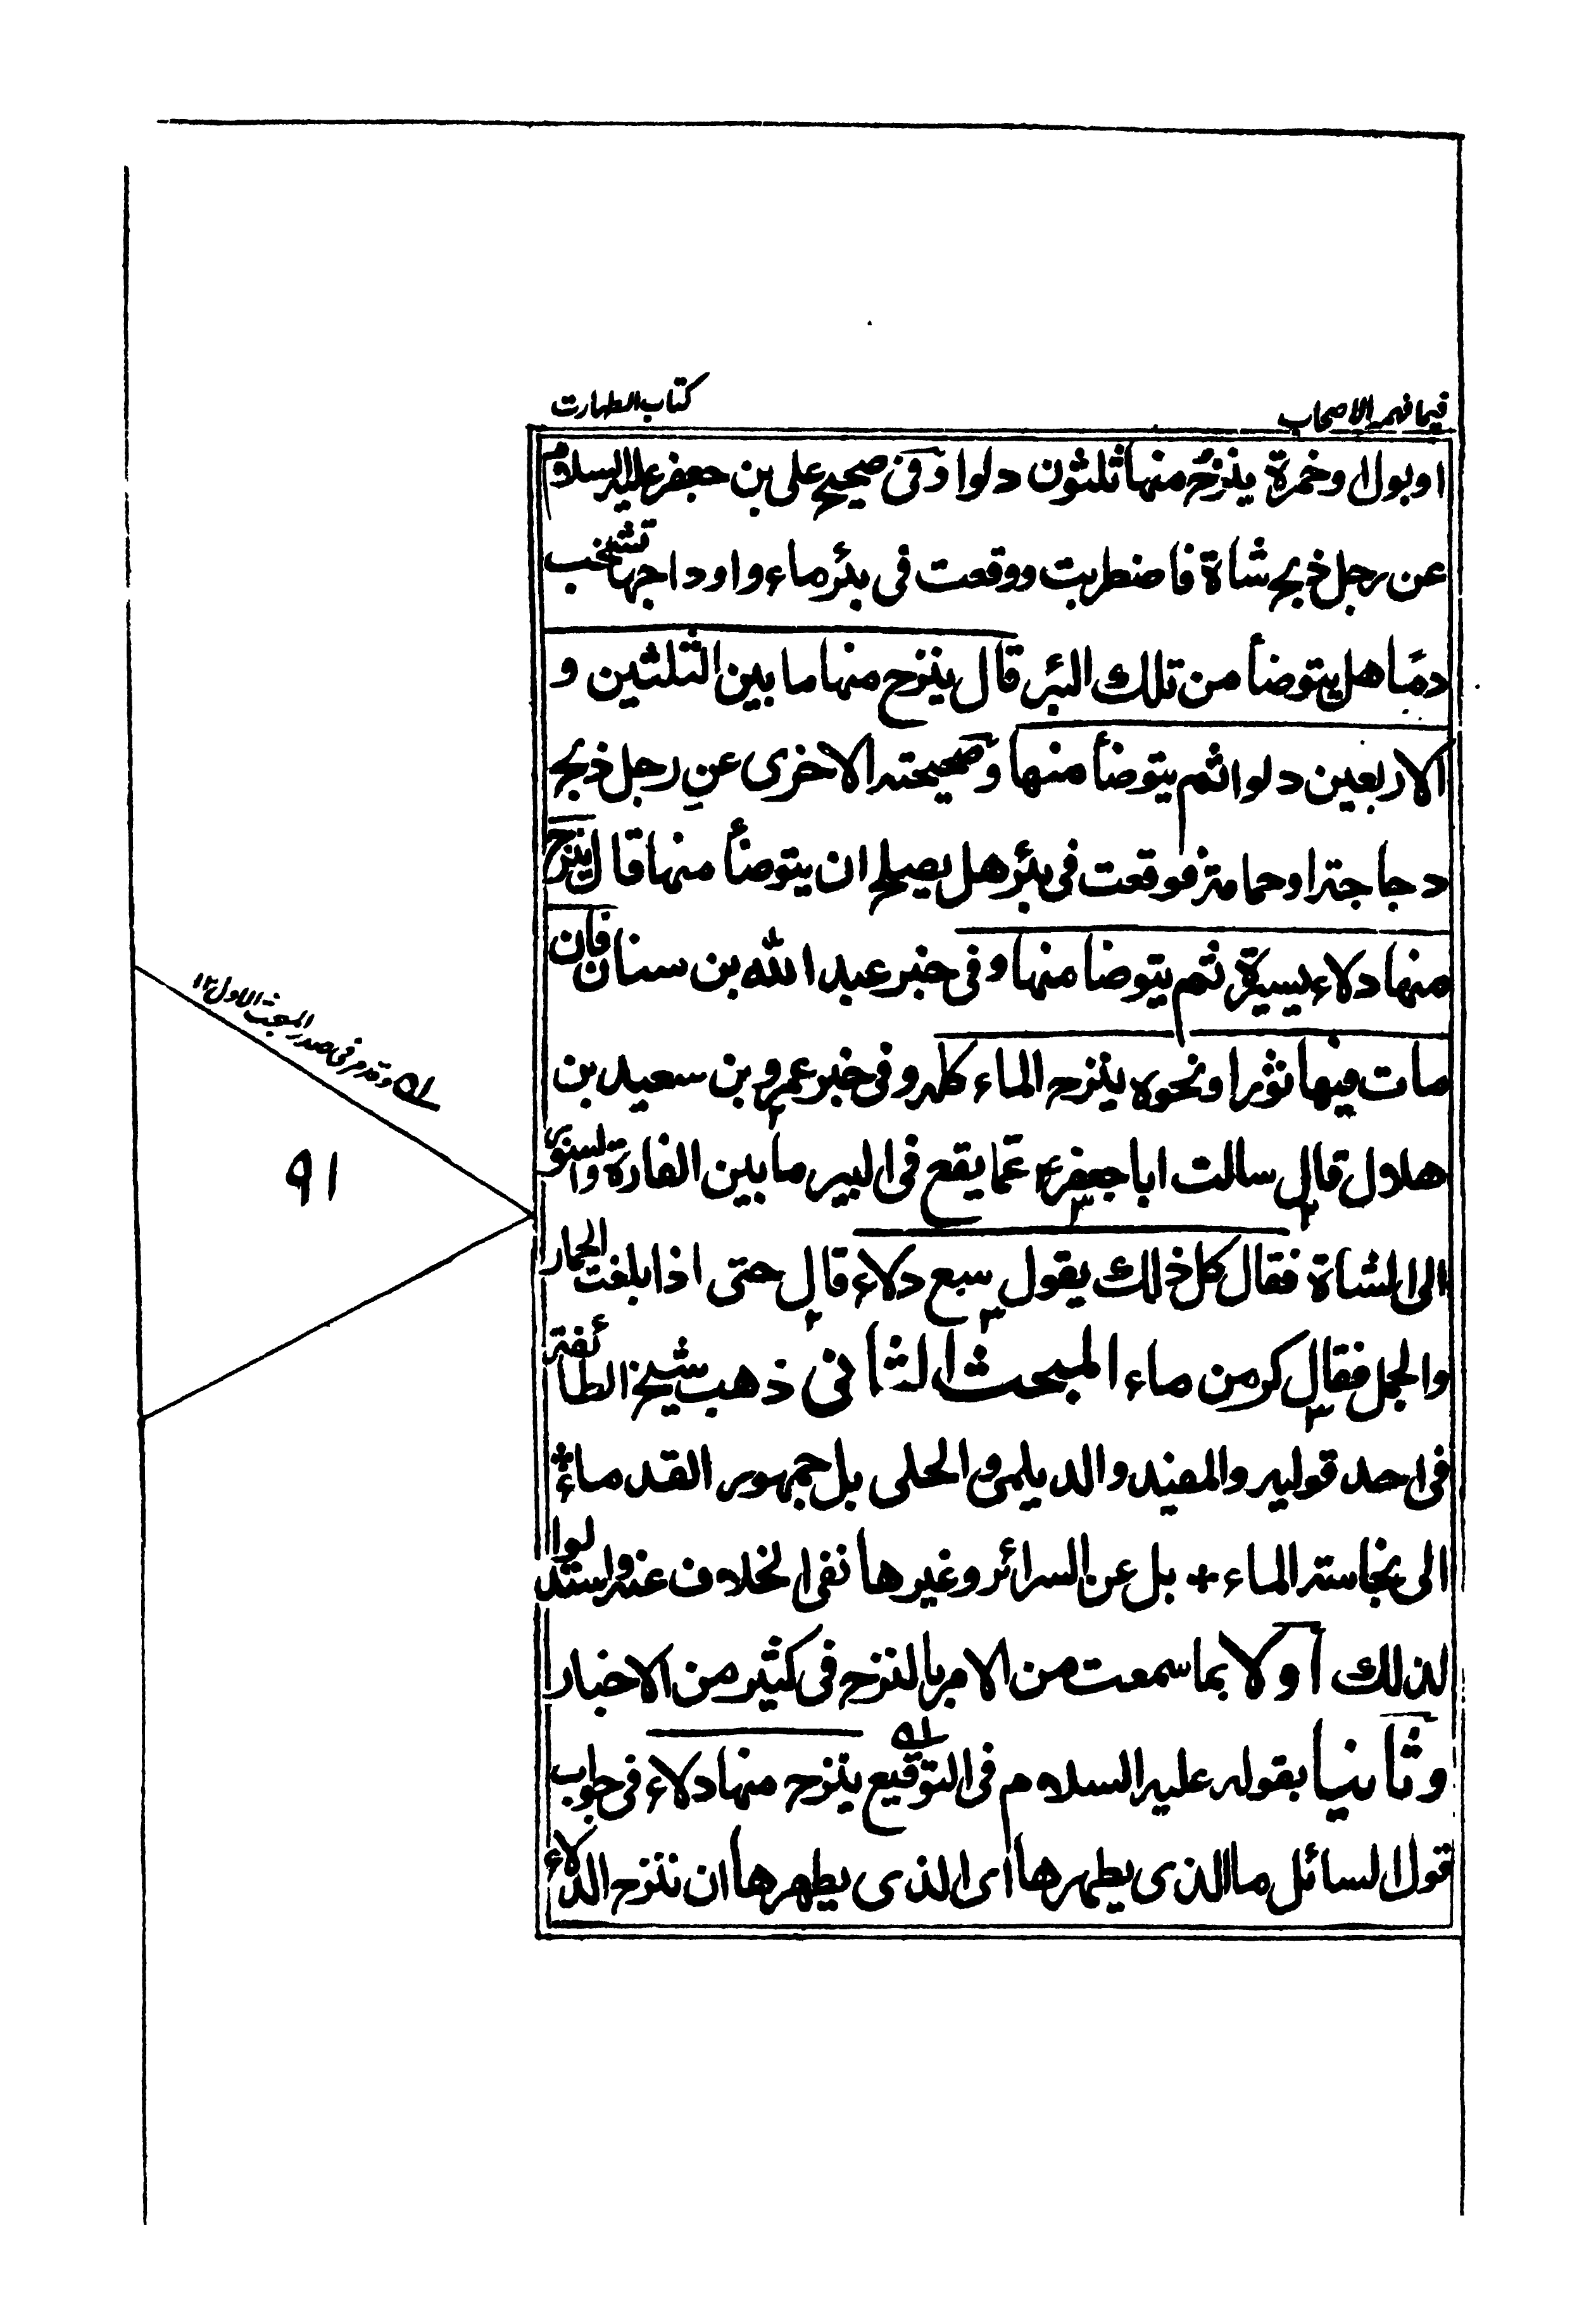 فيما فهمه الاصحاب
كتاب الطهارت
او بول او خمرة ينزح منها ثلثون دلوا وفى صحيح على بن جعفر عليه السلام
عن رجل ذبح شاة فاضطربت ووقعت فى بئر ماء واوداجها تشخب
دما هل يتوضأ من تلك البئر قال ينزح منها ما بين الثلثين و
الاربعين دلوا ثم يتوضأ منها وصحيحته الاخرى عن رجل ذبح
دجاجة او حمامة فوقعت فى بئر هل يصلح ان يتوضأ منها قال ينزح
منها دلاء يسيرة ثم يتوضا منها وفى خبر عبد الله بن سنان فان
مات فيها ثور او نحوه ينزح الماء كله وفى خبر عمرو بن سعيد بن
هلال قال سالت ابا جعفر ع عما يقع فى البير ما بين الفارة والسنور
الى الشاة فقال كل ذلك يقول سبع دلاء قال حتى اذا بلغت الحمار
والجمل فقال كر من ماء المبحث الثانى ذهب شيخ الطائفة
فى احد قوليه والمفيد والديلمى والحلى بل جمهور القدماء
الى نجاسة الماء + بل عن السرائر وغيرها نفى الخلاف عنه واستدلوا
لذلك أولا بما سمعت من الامر بالنزح فى كثير من الاخبار
وثانيا بقوله عليه السلام فى التوقيع ينزح منها دلاء فى جواب
قول السائل ما الذى يطهرها اى الذى يطهرها ان ننزح الدلاء
وقد مر فى صدر المبحث الاول ١٢
٩١